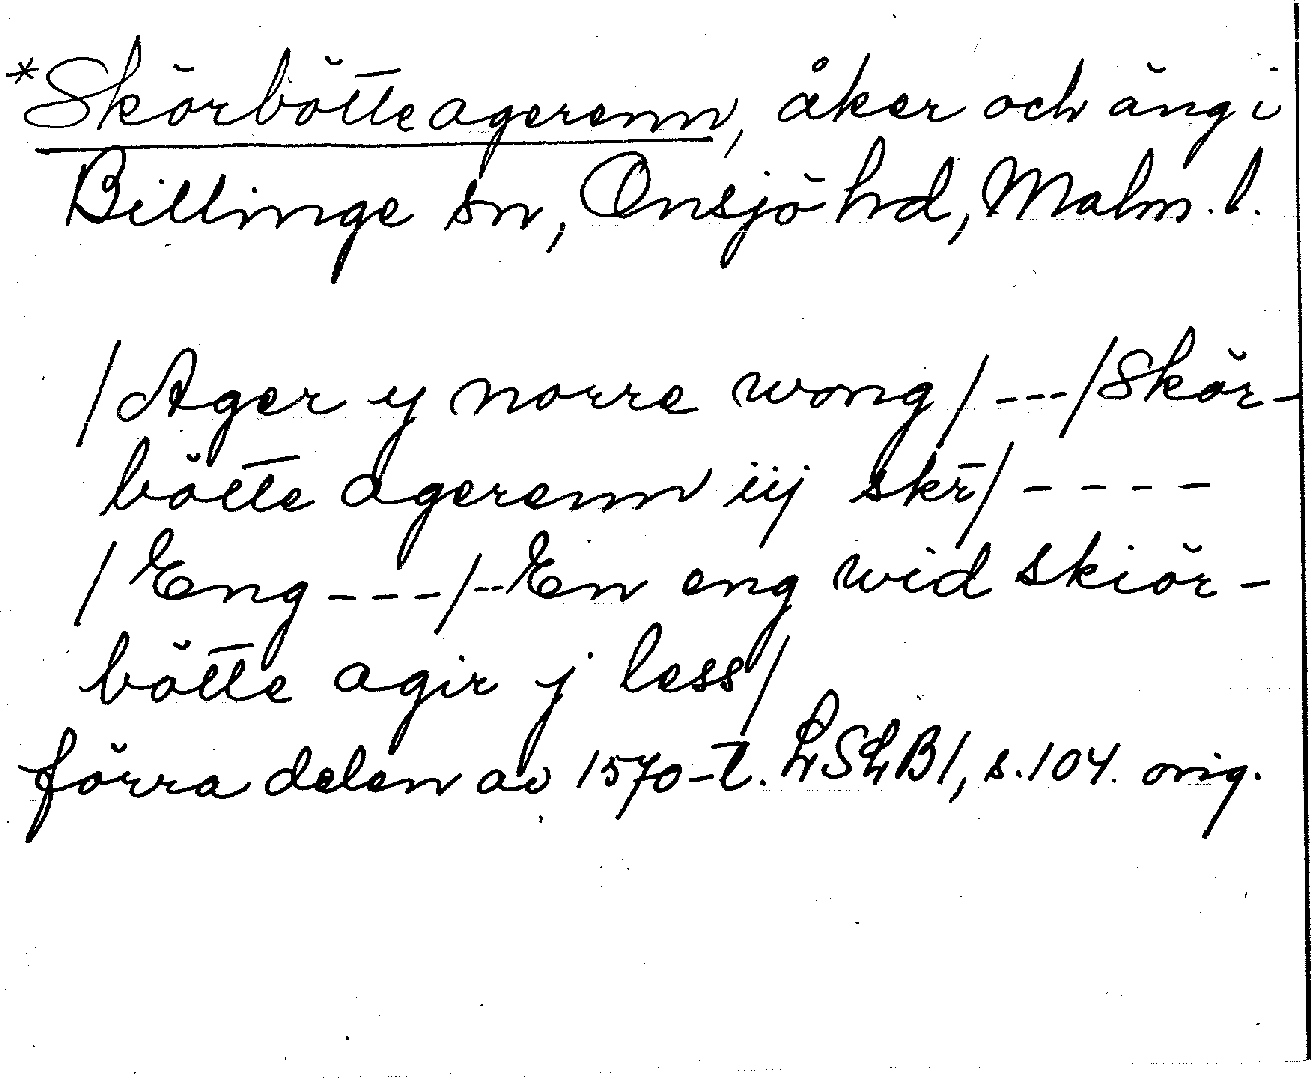 *Skörbötteagerenn, åker och äng i
Billinge sn, Onsjö hd, Malm. l.
/Ager y norre wong/ ---/Skör-
bötte agerenn iij skr̄/ - - - -
/Eng ---/--En eng wid skiör-
bötte agir j less/
förra delen av 1570-t. LSLB1, s.104. orig.